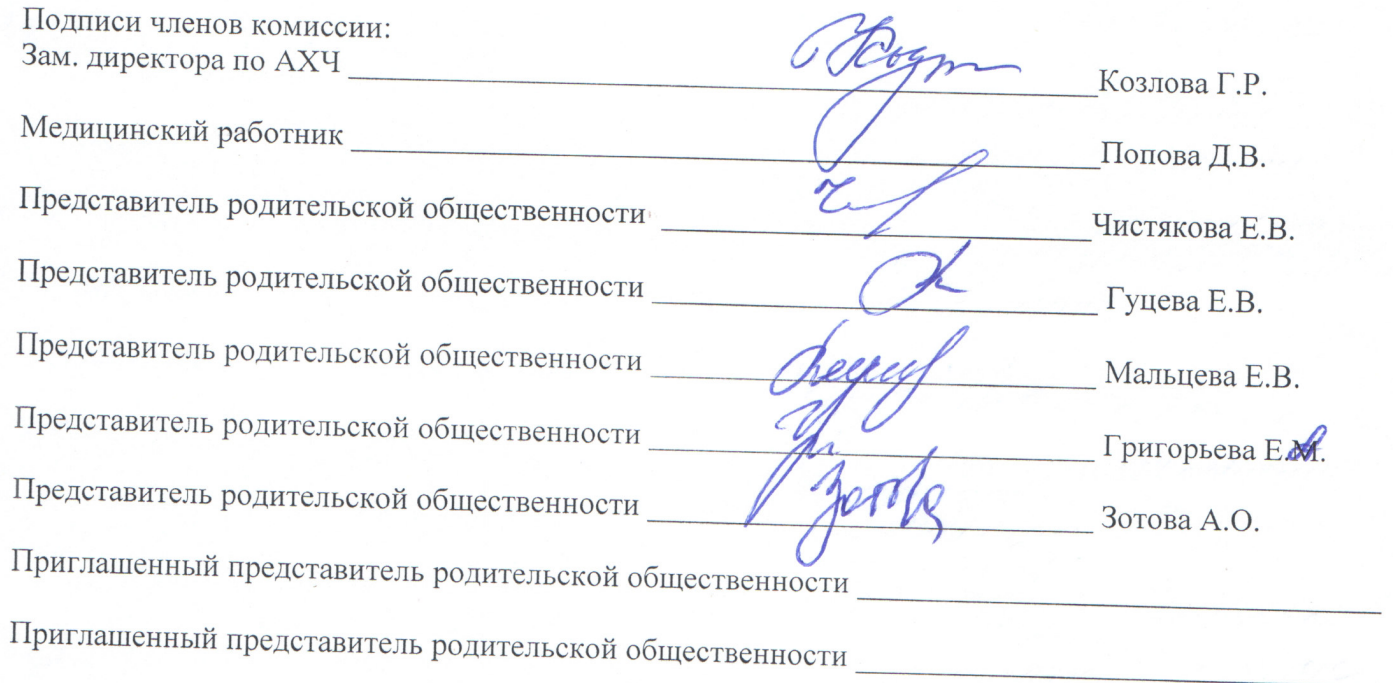 Подписи членов комиссии:
Зам. директора по АХЧ Козлова Г.Р.
Медицинский работник Попова Д.В.
Представитель родительской общественности Чистякова Е.В.
Представитель родительской общественности Гуцева Е.В.
Представитель родительской общественности Мальцева Е.В.
Представитель родительской общественности Григорьева Е.В.
Представитель родительской общественности Зотова Зотова А.О.
Приглашенный представитель родительской общественности
Приглашенный представитель родительской общественности